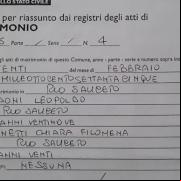 LLO STATO CIVILE
per riassunto dai registri degli atti di
MONIO
Parte / Serie / N 4
gli atti di matrimonio di questo Comune, anno - parte - serie e numero sopra in
VENTI del mese di FEBBRAIO
MILLEOTTOCENTOSETTANTACINQUE
in RIO SALICETO
LEOPOLDO
in RIO SALICETO
ANNI VENTINOVE
NETTI CHIARA FILOMENA
in RIO SALICETO
ANNI VENTI
NESSUNA